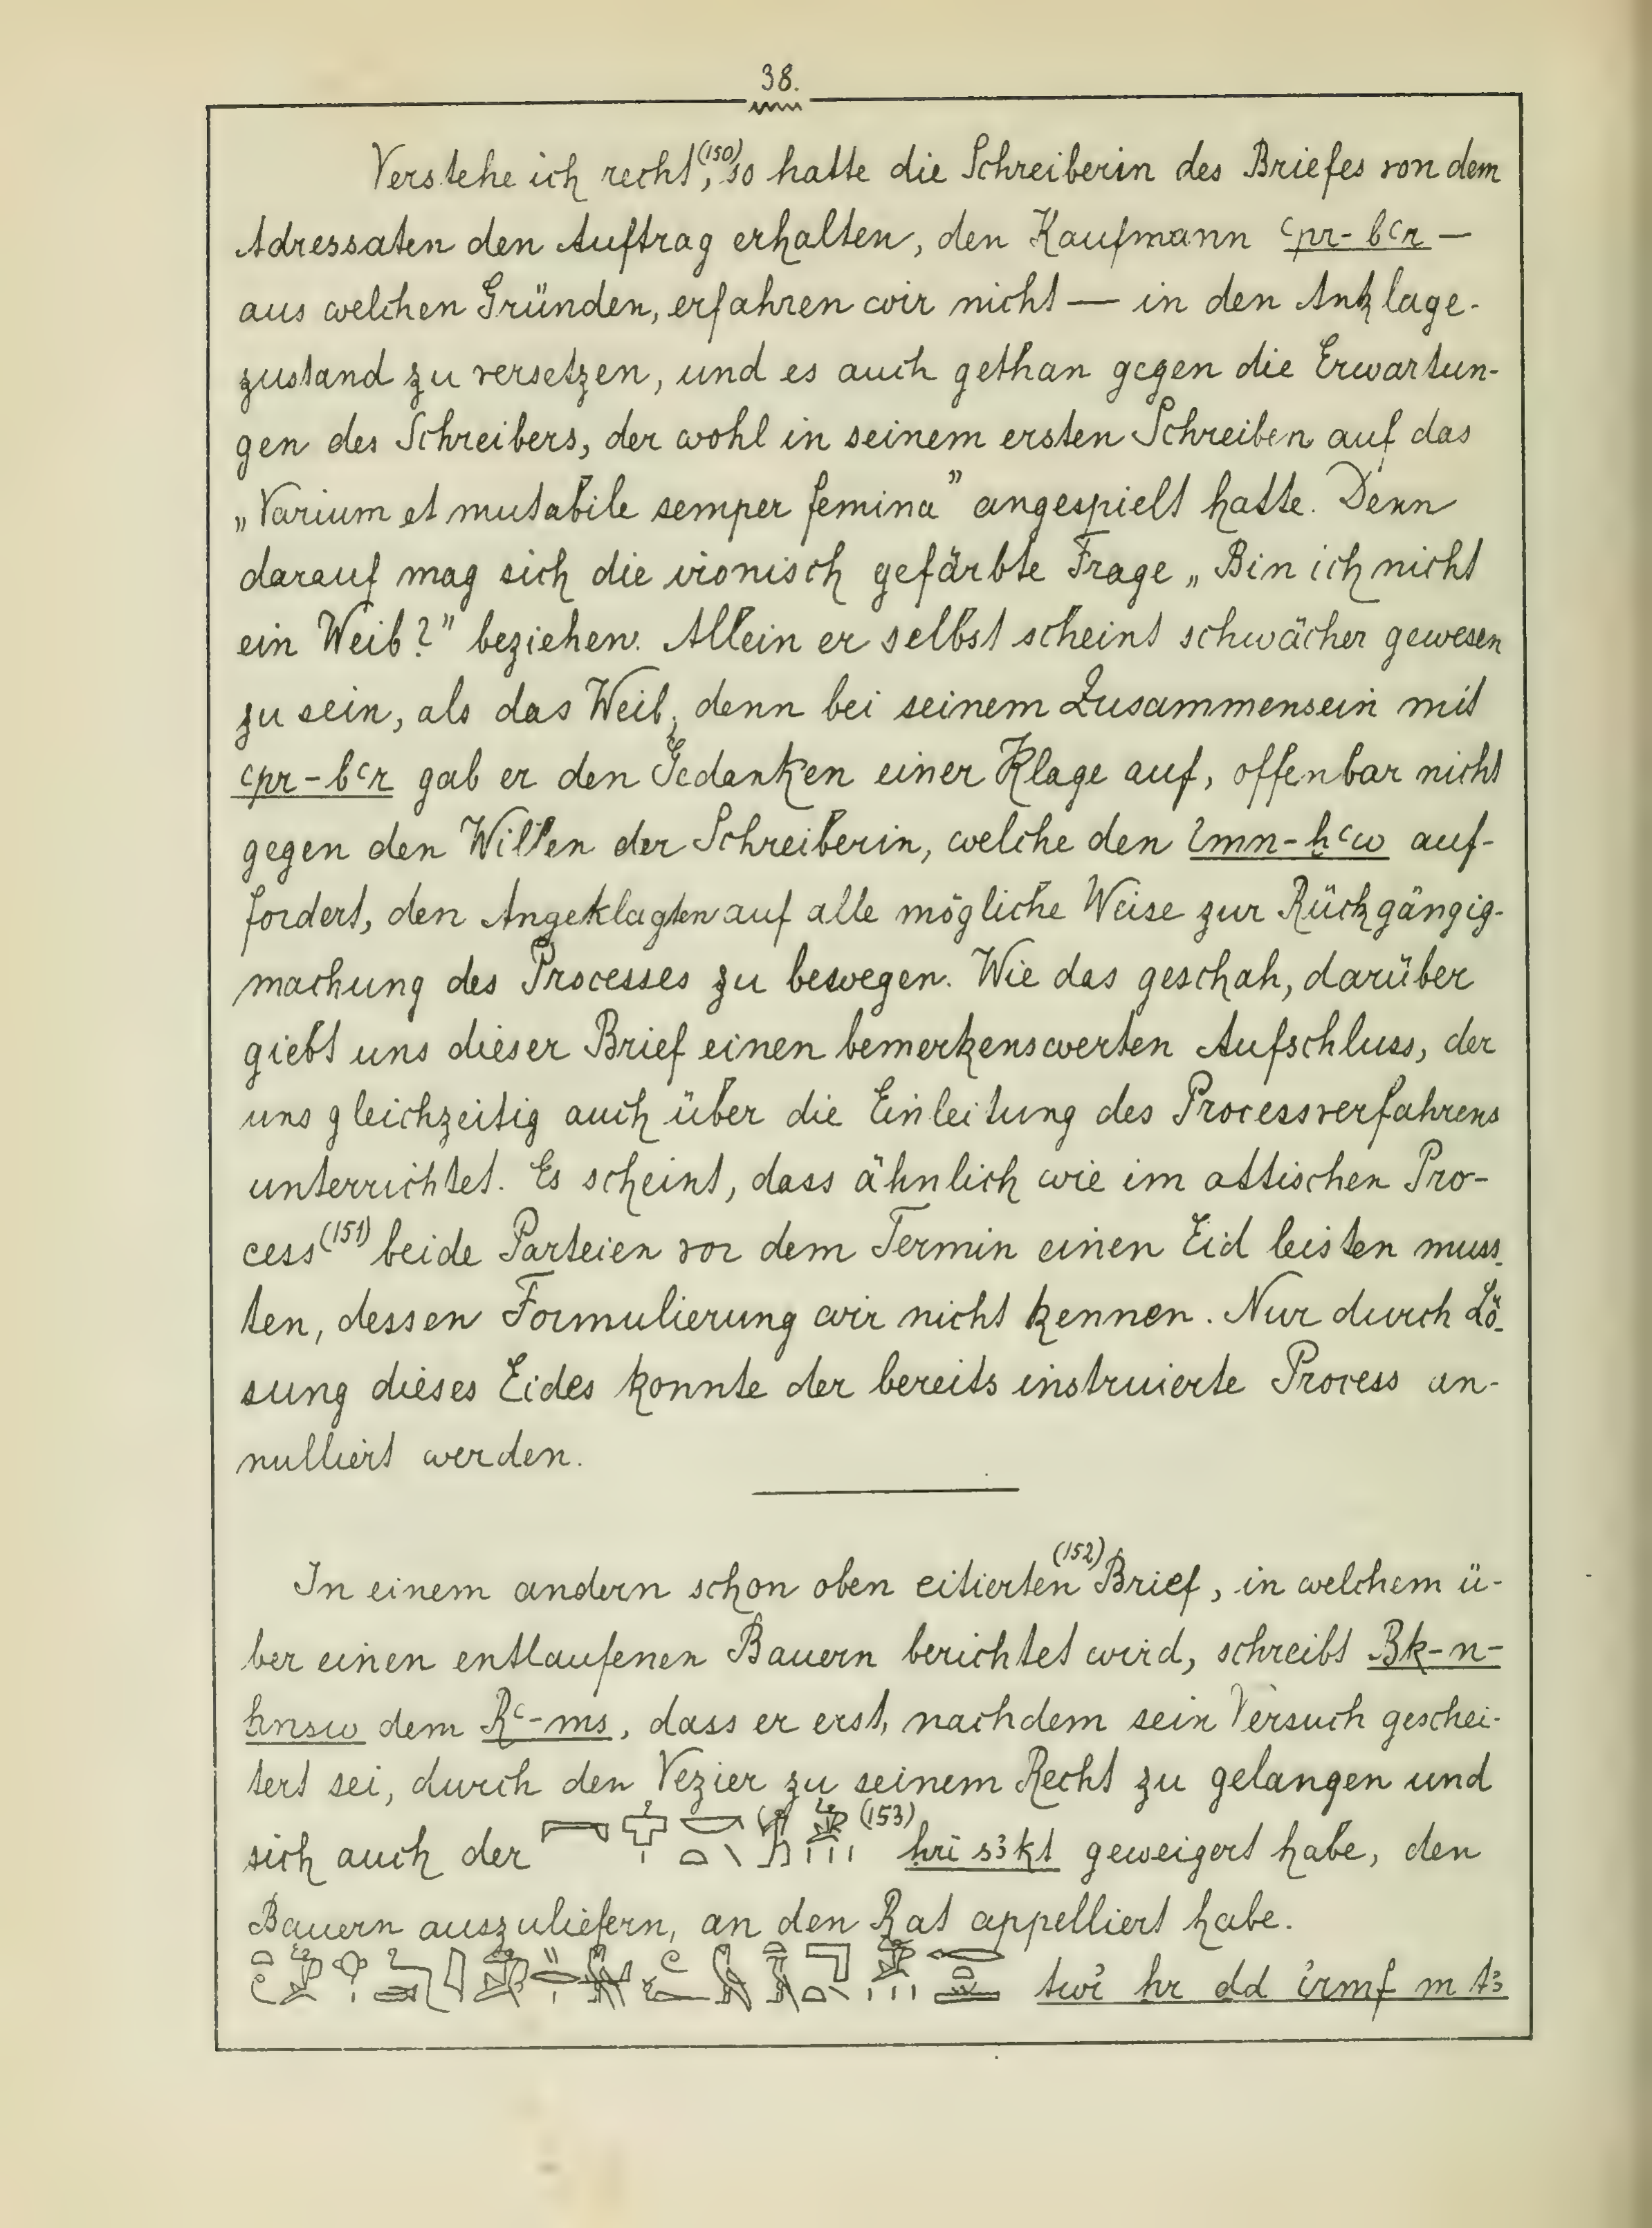 38.
Verstehe ich recht,(150) so hatte die Schreiberin des Briefes von dem
Adressaten den Auftrag erhalten, den Kaufmann ꜥpr-bꜥr —
aus welchen Gründen, erfahren wir nicht — in den Anklage-
zustand zu versetzen, und es auch gethan gegen die Erwartun-
gen des Schreibers, der wohl in seinem ersten Schreiben auf das
„Varium et mutabile semper femina” angespielt hatte. Denn
darauf mag sich die ironisch gefärbte Frage „Bin ich nicht
ein Weib?” beziehen. Allein er selbst scheint schwächer gewesen
zu sein, als das Weib, denn bei seinem Zusammensein mit
ꜥpr-bꜥr gab er den Gedanken einer Klage auf, offenbar nicht
gegen den Willen der Schreiberin, welche den ꞽmn-ḫꜥw auf-
fordert, den Angeklagten auf alle mögliche Weise zur Rückgängig-
machung des Processes zu bewegen. Wie das geschah, darüber
giebt uns dieser Brief einen bemerkenswerten Aufschluss, der
uns gleichzeitig auch über die Einleitung des Processverfahrens
unterrichtet. Es scheint, dass ähnlich wie im attischen Pro-
cess(151) beide Parteien vor dem Termin einen Eid leisten muss-
ten, dessen Formulierung wir nicht kennen. Nur durch Lö-
sung dieses Eides konnte der bereits instruierte Process an-
nulliert werden.
In einem andern schon oben citierten(152) Brief, in welchem ü-
ber einen entlaufenen Bauern berichtet wird, schreibt Bk-n-
ḫnsw dem Rꜥ-ms, dass er erst, nachdem sein Versuch geschei-
tert sei, durch den Vezier zu seinem Recht zu gelangen und
sich auch der (153) ḥri sꜣkt geweigert habe, den
Bauern auszuliefern, an den Rat appelliert habe.
twꞽ ḥr dd ꞽrmf m tꜣ